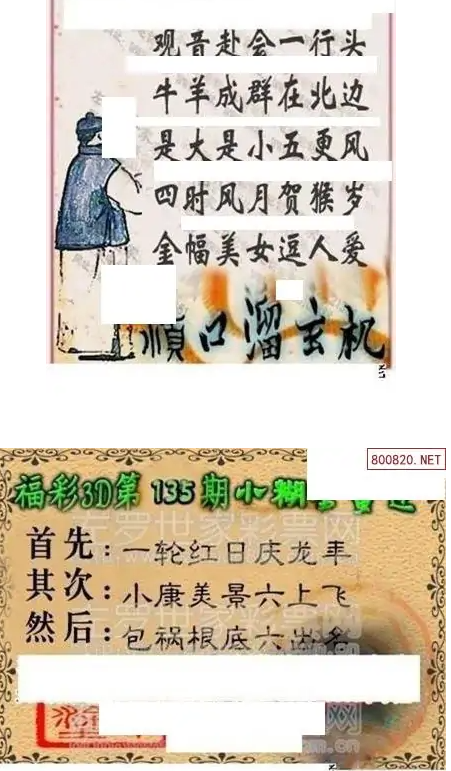 观音赴会一行头
牛羊成群在北边
是大是小五更风
四时风月贺猴岁
金幅美女逗人爱
顺口溜玄机
800820.NET
福彩3D第 135期小糊
首先:一轮红日庆龙年
其次:小康美景六上飞
然后:包祸根底六出名